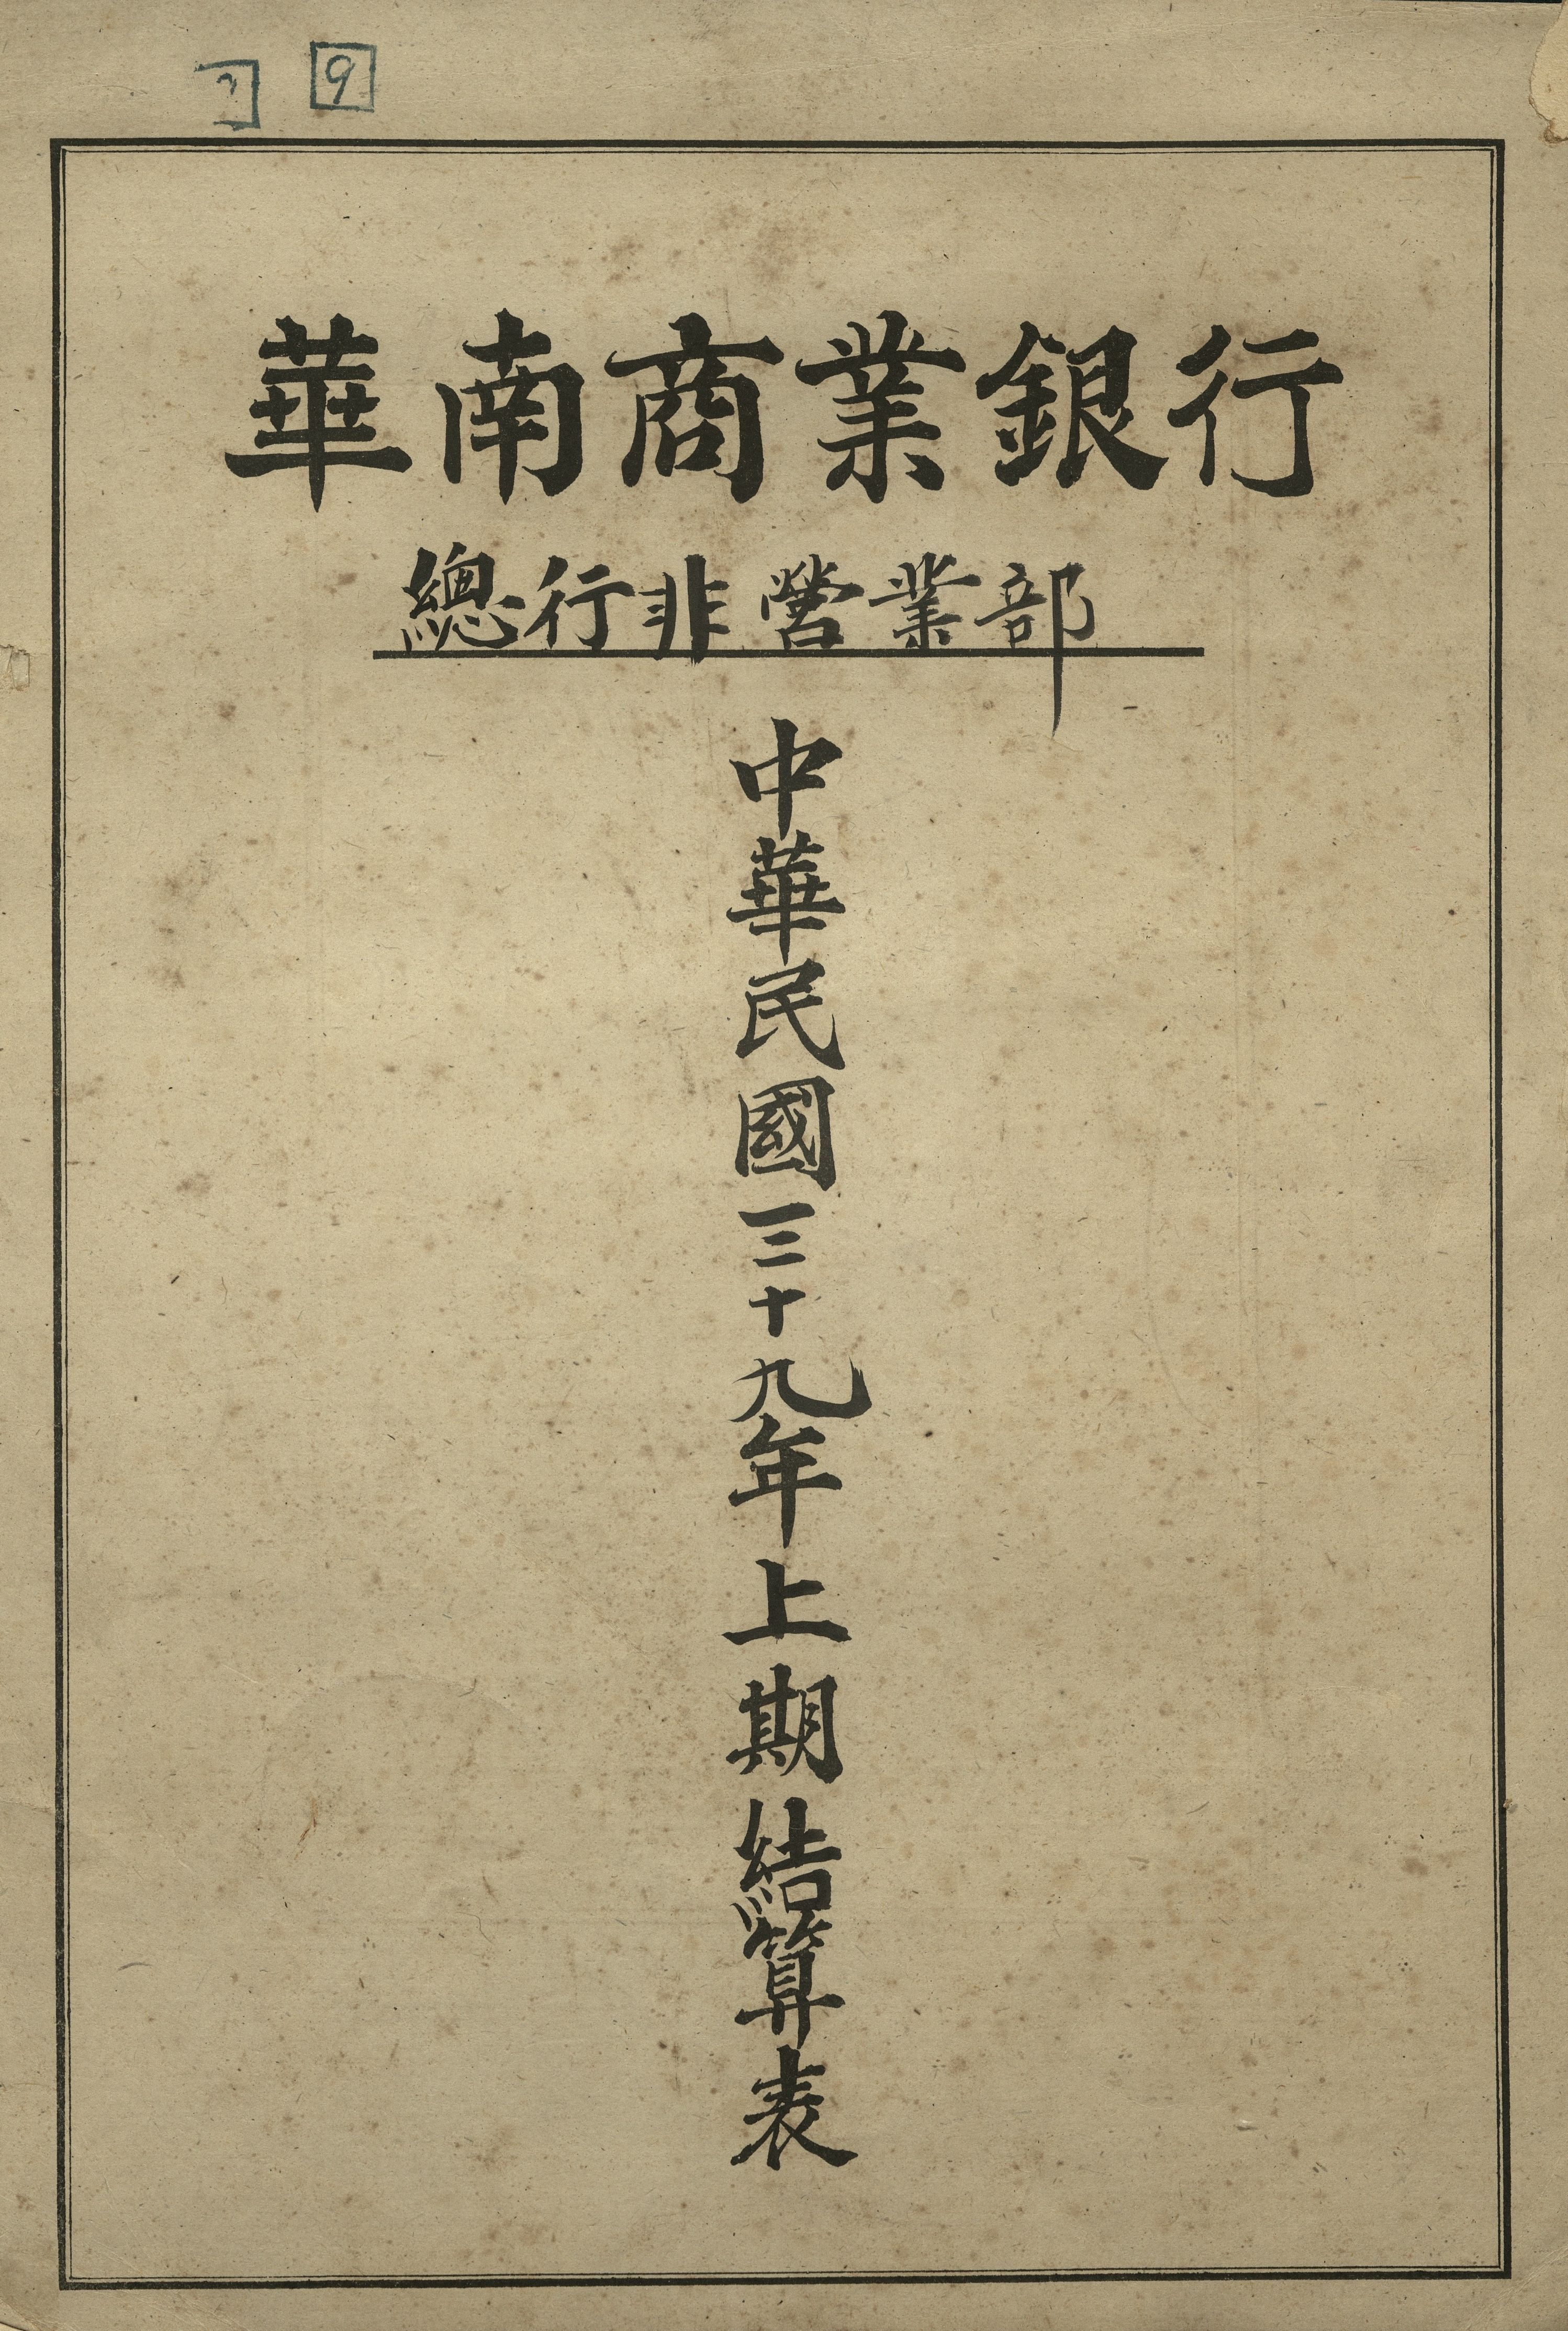 9
華南商業銀行
總行非營業部
中華民國三十九年上期結算表